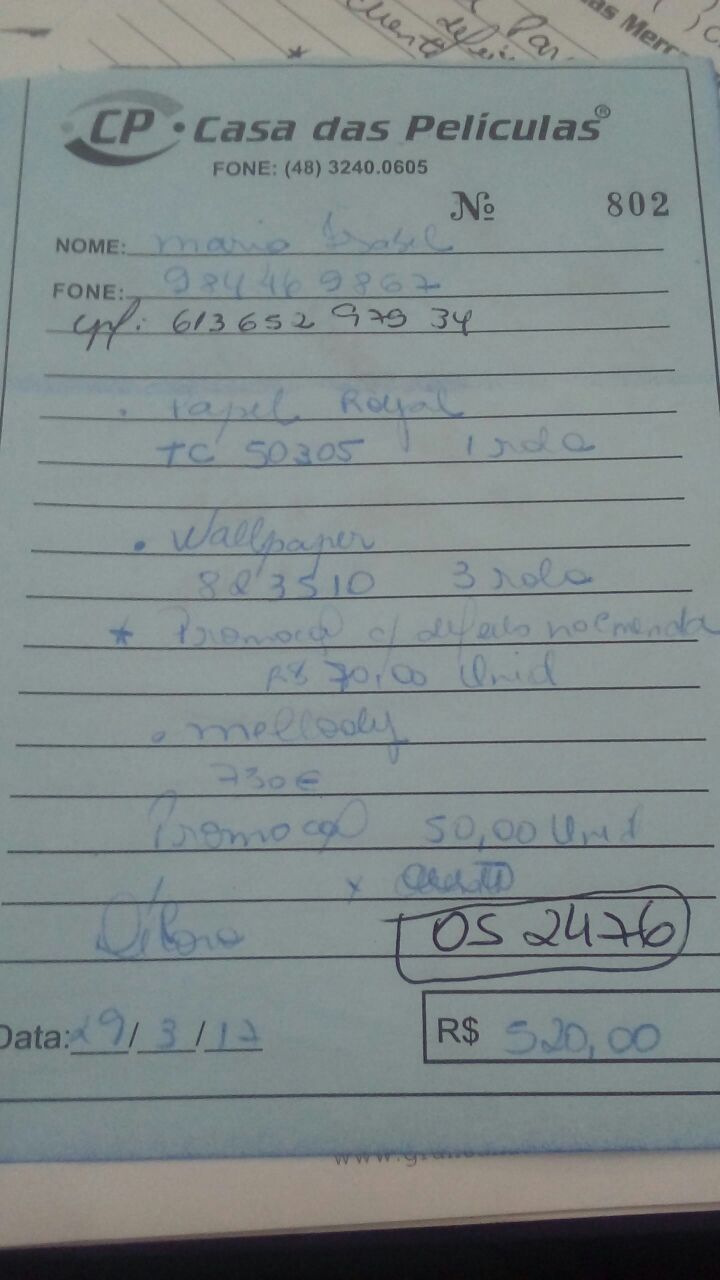 Par
as Merc
defei
CP • Casa das Películas®
FONE: (48) 3240.0605
Nº 802
NOME: maria Isabel
FONE: 984469867
cpf: 613 652 979 34
• Papel Royal
TC 50305 1 rolo
• Wallpaper
823510 3 rolo
* Promoção c/ defeito no emenda
R$ 70,00 Unid
• mellody
730€
Promoção 50,00 Unid
x
Débora OS 2476
Data: 29/3/17 R$ 520,00